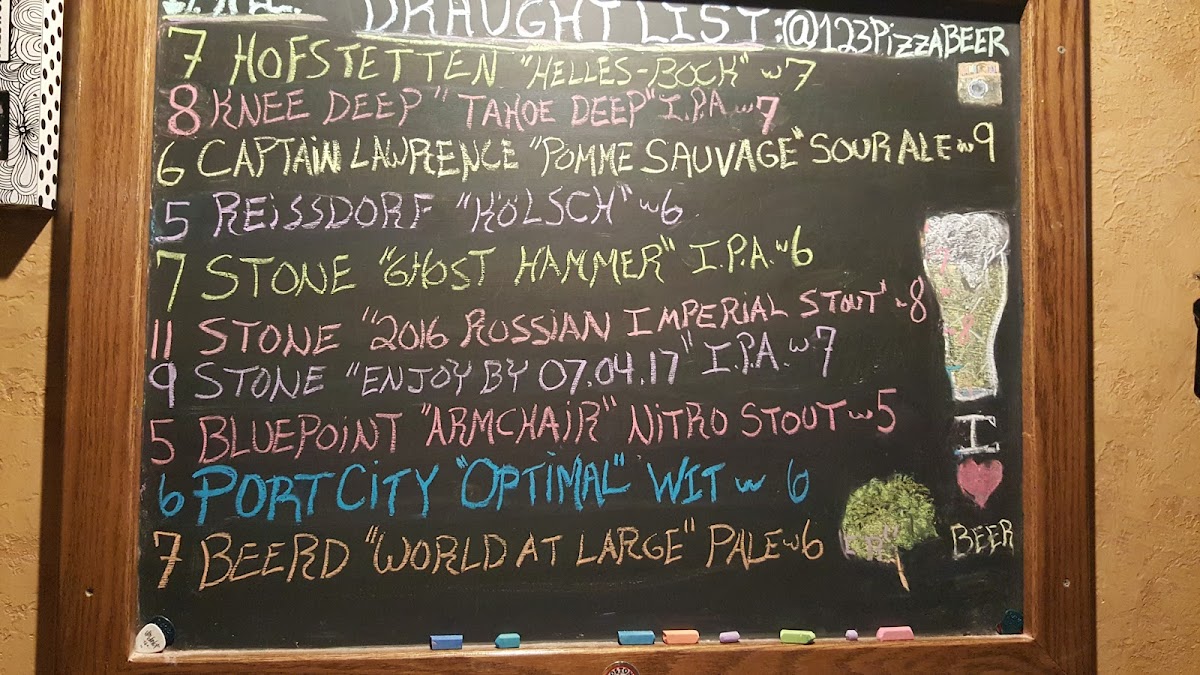 DRAUGHT LIST: @123PizzABEER
7 HOFSTETTEN "HELLES-BOCK" w 7
8 KNEE DEEP "TAHOE DEEP" I.P.A w 7
6 CAPTAiN LAWRENCE "POMME SAUVAGE" SOUR ALE w 9
5 REiSSDORF "KÖLSCH" w 6
7 STONE "GHOST HAMMER" I.P.A. w 6
11 STONE "2016 RUSSiAN IMPERiAL STOUT" w 8
9 STONE "ENJOY BY 07.04.17" I.P.A. w 7
5 BLUEPOiNT "ARMCHAiR" NiTRO STOUT w 5
6 PORT CiTY "OPTiMAL" WIT w 6
7 BEERD "WORLD AT LARGE" PALE w 6
I
BEER